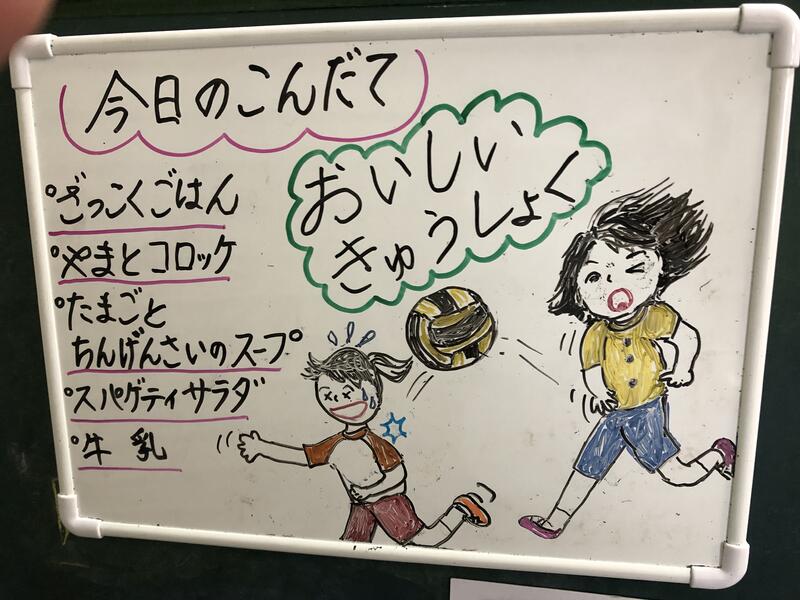 今日のこんだて
おいしい
きゅうしょく
°ざっこくごはん
°やまとコロッケ
°たまごと
ちんげんさいのスープ
°スパゲティサラダ
°牛乳